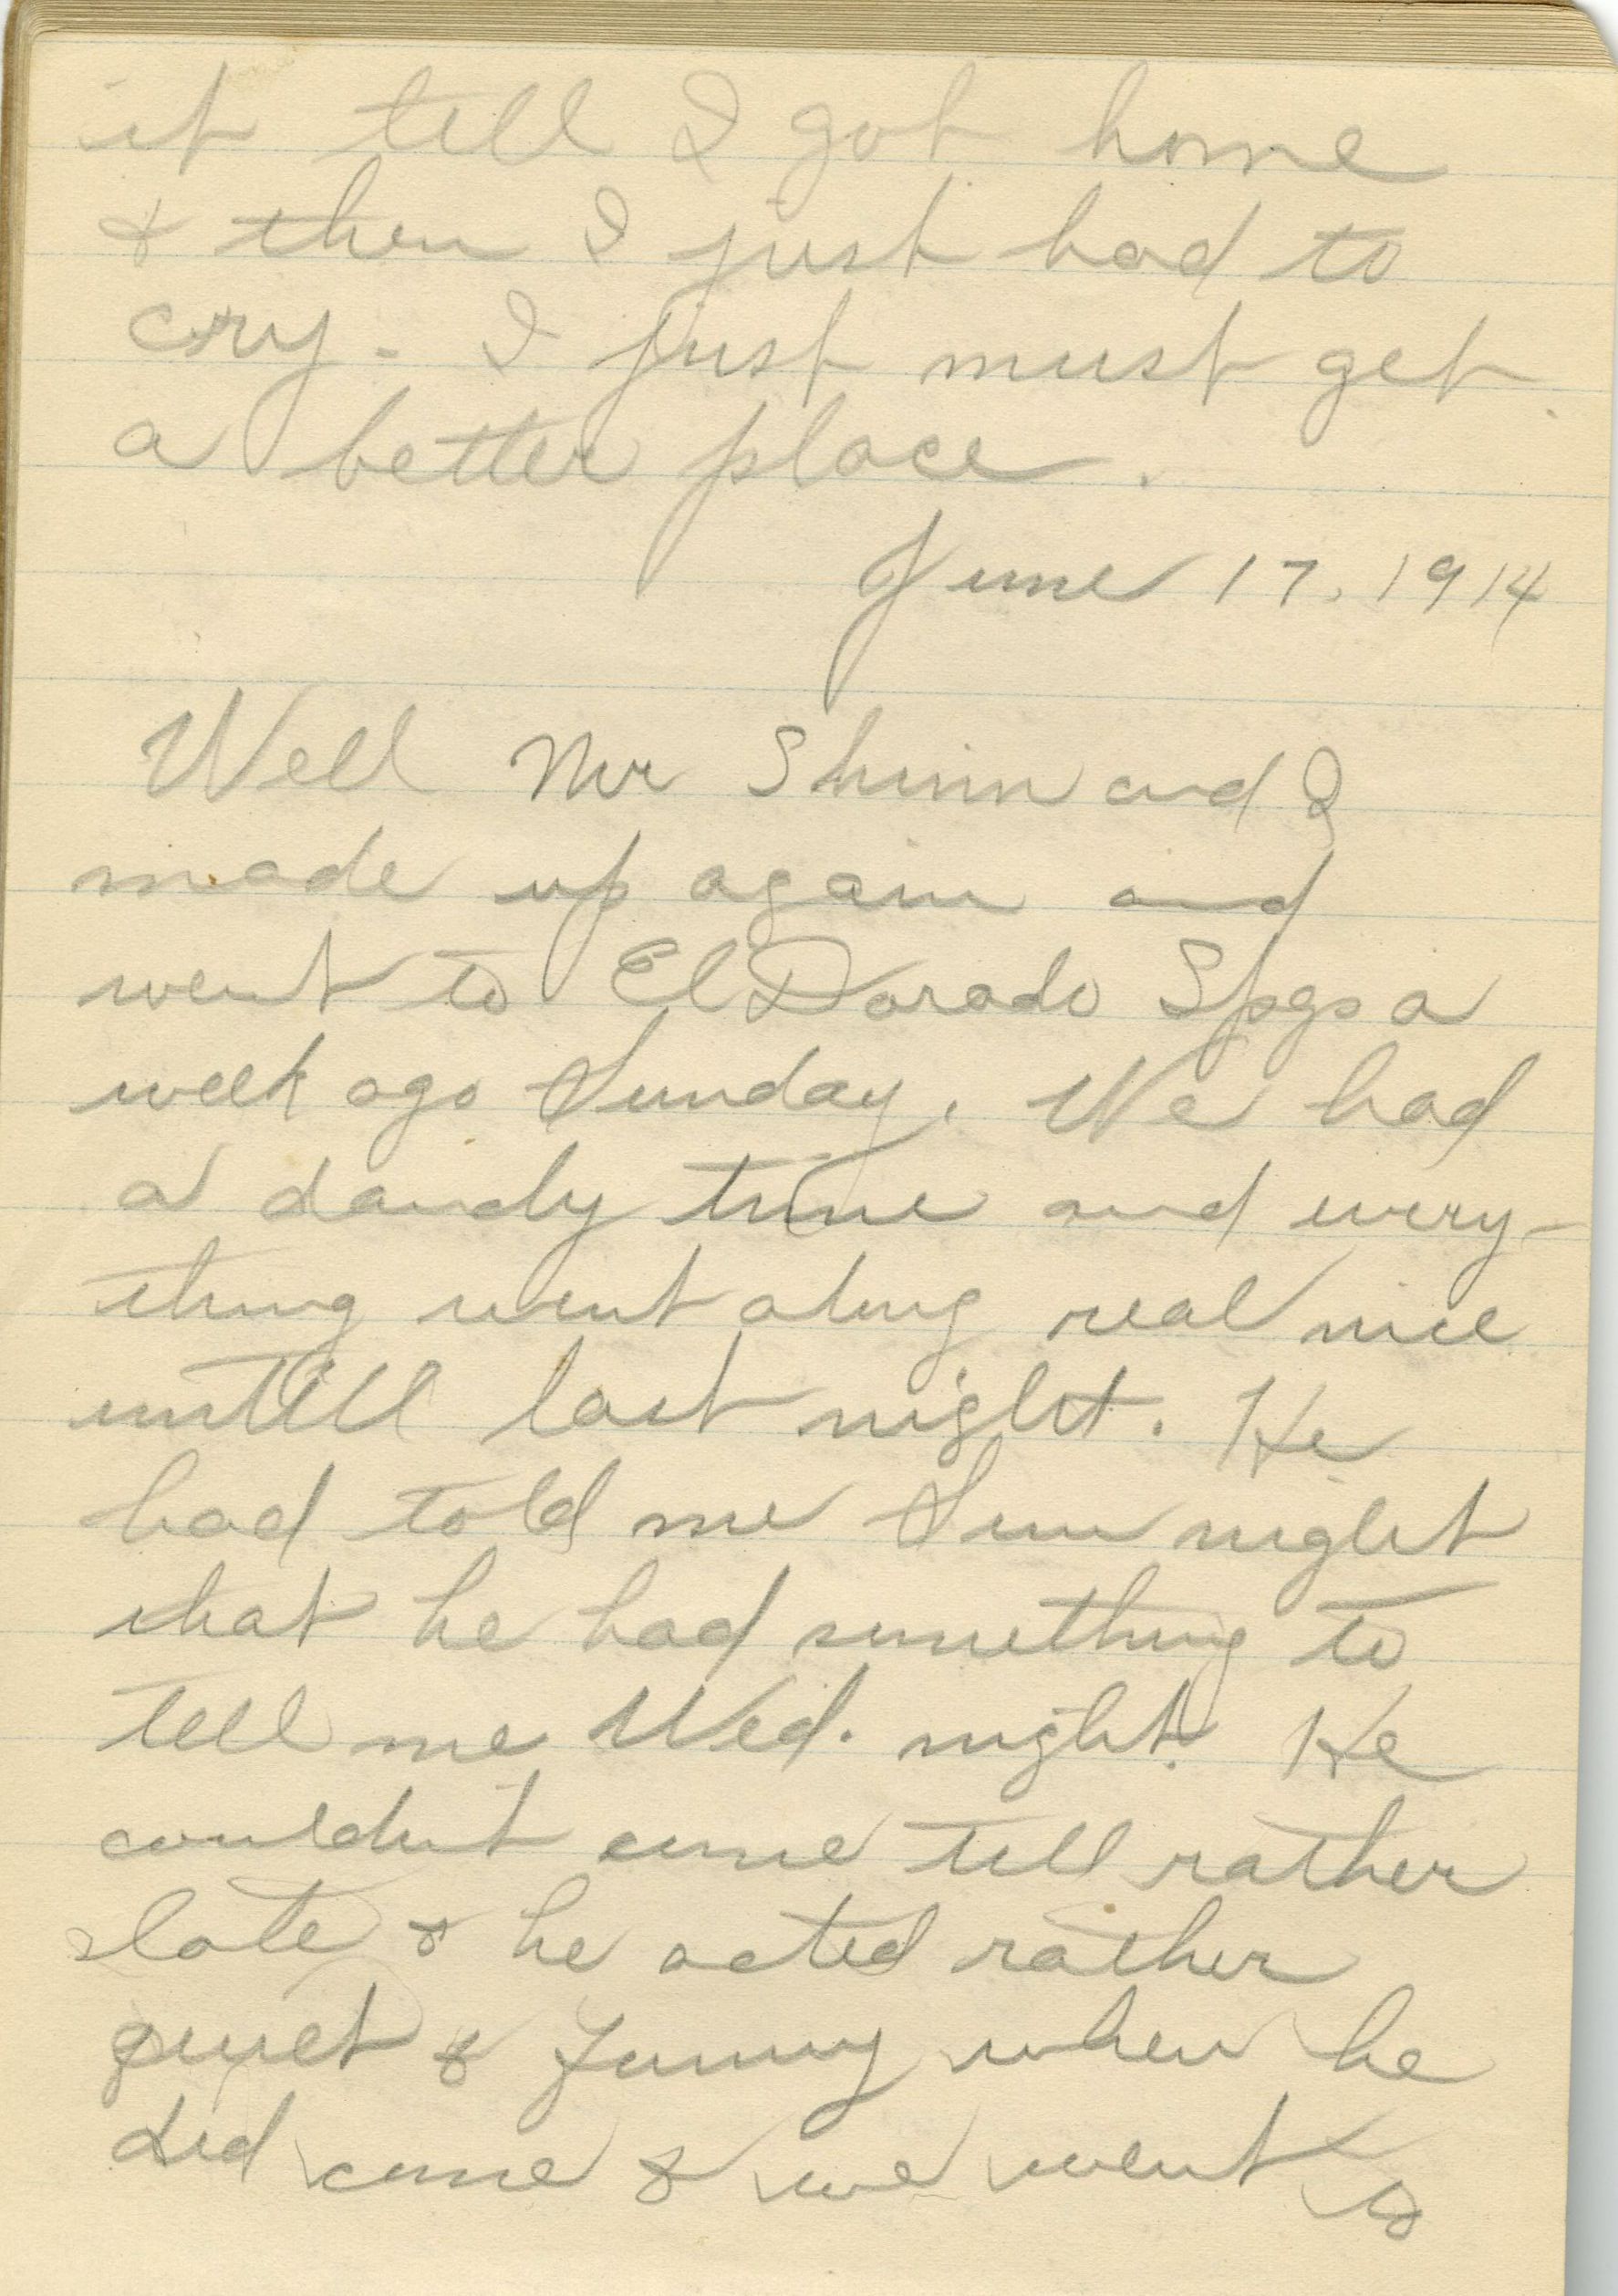 it till I got home
& then I just had to
cry - I just must get
a better place.
June 17, 1914
Well Mr Shinn and I
made up again and
went to El Dorado Spgs a
week ago Sunday. We had
a dandy time and every-
thing went along real nice
untill last night. He
had told me Sun night
that he had something to
tell me Wed. night. He
couldn't come till rather
late & he acted rather
quiet & funny when he
did come & we went to